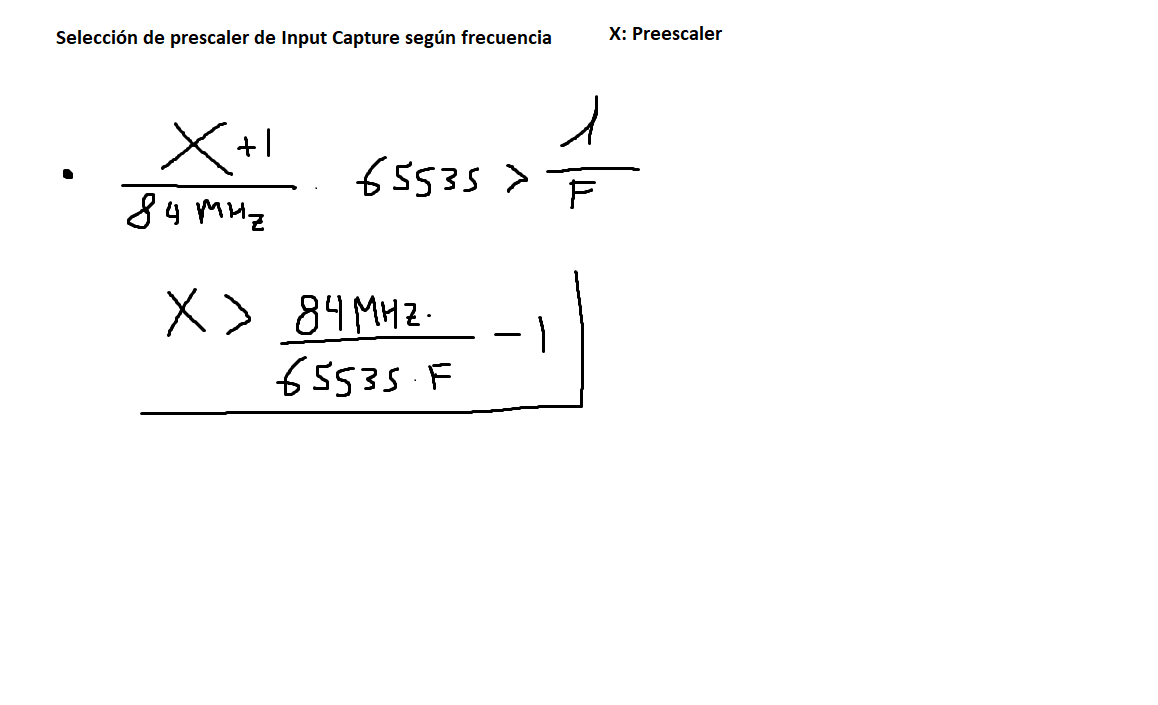 Selección de prescaler de Input Capture según frecuencia X: Preescaler
X+1 / 84 MHz . 65535 > 1 / F
X > 84 MHz. / 65535 . F - 1